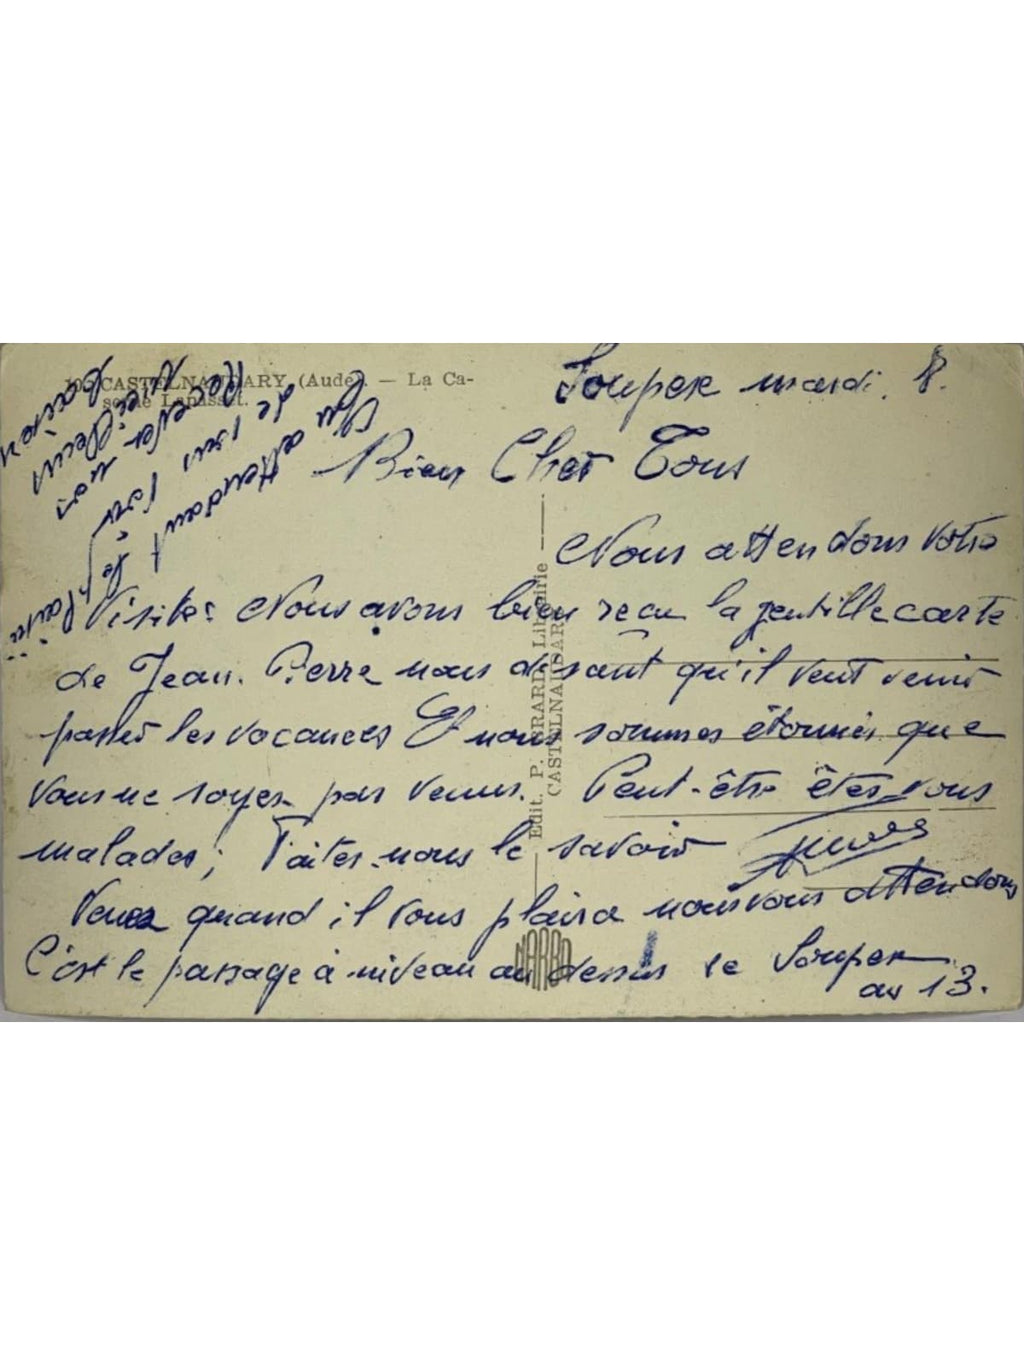 10. CASTELNAUDARY (Aude). — La Ca-
serne Lapasset.
Soupex mardi 8.
Bien Cher Tous
Nous attendons votre
Visite: Nous avons bien recu la gentille carte
de Jean. Pierre nous desant qu'il veut venir
passer les vacances Et nous sommes étonnés que
vous ne soyez pas venus. Peut-être êtes vous
malades; Faites nous le savoir
Venez quand il vous plaira nous vous attendons
C'est le passage à niveau au dessus de Soupex
au 13.
En attendant
de vous lire
Recever nos
meilleurs
Baisers
le plaisir
Edit. P. GERARD, Librairie
CASTELNAUDARY
NARBO